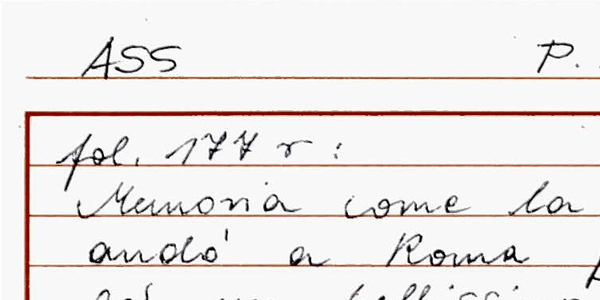 ASS P.
fol. 177 r :
Memoria come la
andò a Roma